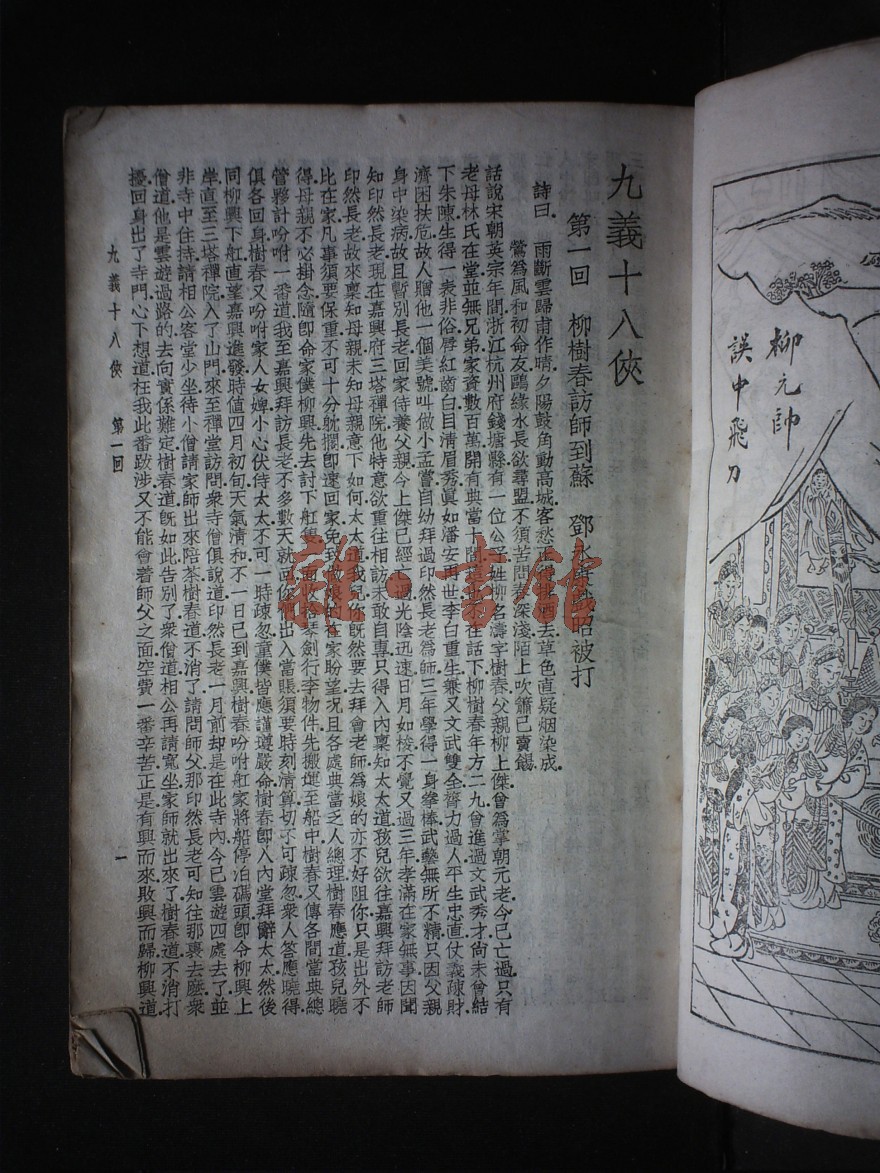 柳元帥
誤中飛刀
九義十八俠
第一回 柳樹春訪師到蘇 鄧永 昭被打
詩曰 雨斷雲歸甫作晴夕陽鼓角動高城客愁正 酒去草色直疑烟染成
鶯爲風和初命友鷗緣水長欲尋盟不須苦問春深淺陌上吹簫已賣餳
話說宋朝英宗年間浙江杭州府錢塘縣有一位公子姓柳名濤字樹春父親柳上傑曾爲掌朝元老今已亡過只有
老母林氏在堂並無兄弟家資數百萬開有典當十 在話下柳樹春年方二九曾進過文武秀才尚未曾結
下朱陳生得一表非俗脣紅齒白目清眉秀眞如潘安再世李白重生兼又文武雙全膂力過人平生忠直仗義疎財
濟困扶危故人贈他一個美號叫做小孟嘗自幼拜過印然長老爲師三年學得一身拳棒武藝無所不精只因父親
身中染病故且暫別長老回家侍養父親今上傑已經亡過光陰迅速日月如梭不覺又過三年孝滿在家無事因聞
知印然長老現在嘉興府三塔禪院他特意欲重往相訪未敢自專只得入內稟知太太道孩兒欲往嘉興拜訪老師
印然長老故來稟知母親未知母親意下如何太太道我兒你既然要去拜會老師爲娘的亦不好阻你只是出外不
比在家凡事須要保重不可十分躭擱卽速回家免致做娘的在家盼望况且各處典當乏人總理樹春應道孩兒曉
得母親不必掛念隨卽命家僕柳興先去討下舡隻 琴劍行李物件先搬運至船中樹春又傳各間當典總
管夥計吩咐一番道我至嘉興拜訪長老不多數天就回你們出入當賬須要時刻清算切不可疎忽衆人答應曉得
俱各回身樹春又吩咐家人女婢小心伏侍太太不可一時疎忽童僕皆應謹遵嚴命樹春卽入內堂拜辭太太然後
同柳興下舡直望嘉興進發時值四月初旬天氣清和不一日已到嘉興樹春吩咐舡家將船停泊碼頭卽令柳興上
岸直至三塔禪院入了山門來至禪堂訪問衆寺僧俱說道印然長老一月前却是在此寺內今已雲遊四處去了並
非寺中住持請相公客堂少坐待小僧請家師出來陪茶樹春道不消了請問師父那印然長老可知往那裏去麽衆
僧道他是雲遊過路的去向實係難定樹春道既如此告別了衆僧道相公再請寬坐家師就出來了樹春道不消打
擾回身出了寺門心下想道枉我此番跋涉又不能會着師父之面空費一番辛苦正是有興而來敗興而歸柳興道
九義十八俠 第一回
一
雜·書館